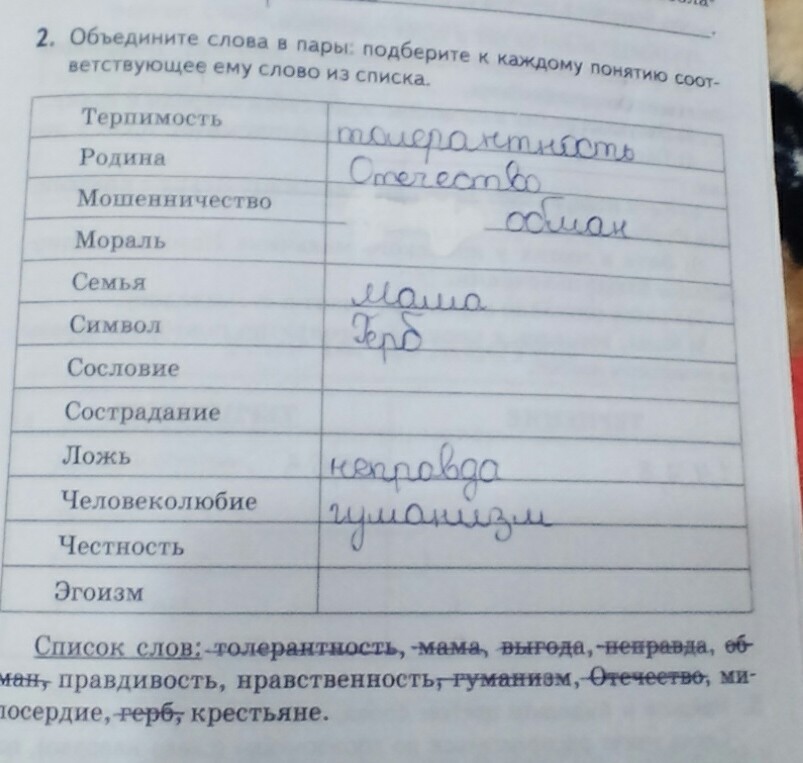 2. Объедините слова в пары: подберите к каждому понятию соот-
ветствующее ему слово из списка.
Терпимость толерантность
Родина Отечество
Мошенничество обман
Мораль
Семья мама
Символ Герб
Сословие
Сострадание
Ложь неправда
Человеколюбие гуманизм
Честность
Эгоизм
Список слов: толерантность, мама, выгода, неправда, об-
ман, правдивость, нравственность, гуманизм, Отечество, ми-
лосердие, герб, крестьяне.